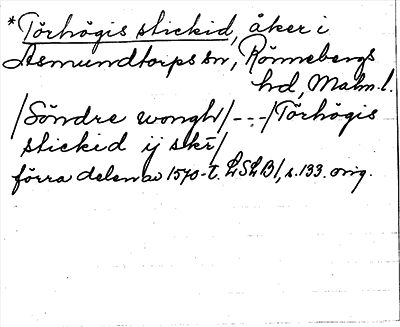 *Törhögis stickid, åker i
Asmundtorps sn, Rönnebergs
hd, Malm. l.
/Söndre wongh/ - - - /Törhögis
stickid ij skr/
förra delen av 1570-t. LSLB1, s. 133. orig.